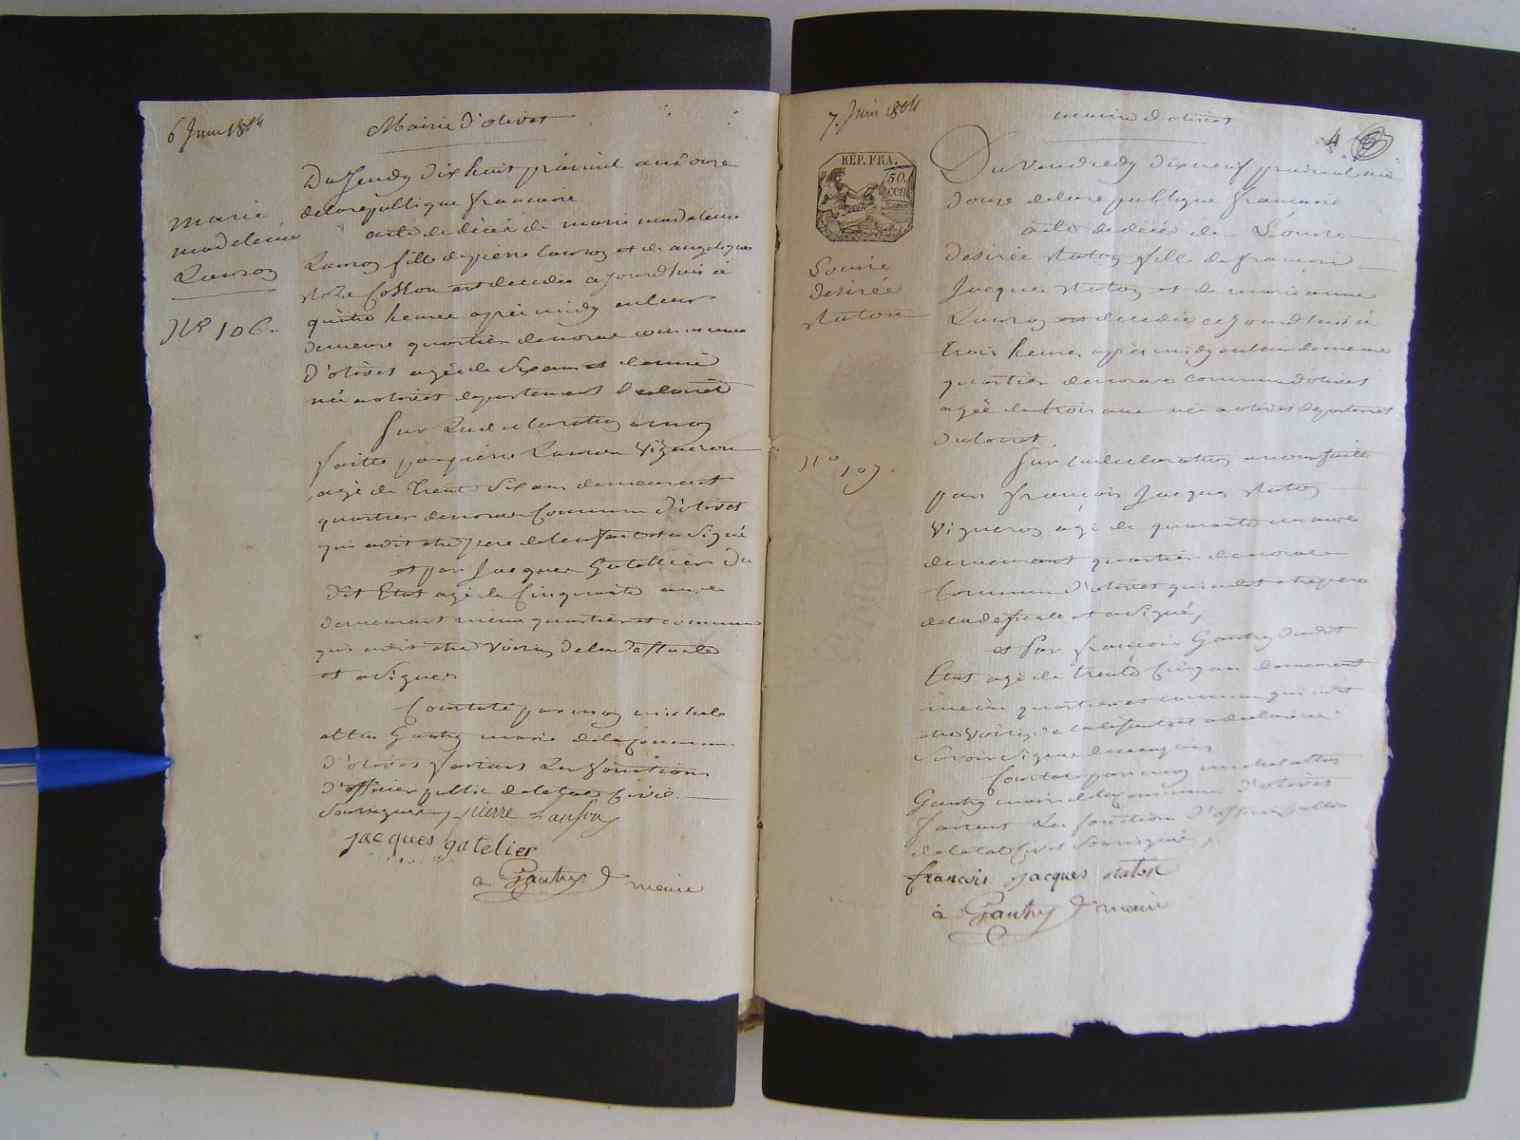 6 Juin 1804
Mairie d'olivet
Marie
madeleine
Lanson
N° 106.
Du Jeudy dix huit prairial an douze
dela republique francaise
acte de décés de marie madeleine
Lanson fille de pierre Lanson et de angelique
Cosson est decedée cejourdhui à
quatre heures après midy en leur
demeure quartier commune
d'olivet agée de Six ans et demie
née a olivet departement du loiret
Sur La declaration a moy
faitte par pierre Lanson Vigneron
agé de Trente Six ans demeurant
quartier Commune d'olivet
qui a dit etre pere de lenfant et a Signé
et par Jacques Gatellier du
dit Etat agé de Cinquante ans
demeurant même quartier et commune
qui a dit etre Voisin dela deffunte
et a Signer
Constaté par moy michel
altin Gautry maire dela commune
d'olivet faisant Les fonctions
d'officier public de letat Civil
Soussigné pierre lanson
jacques gatelier
a Gautry maire
7. Juin 1804
mairie d'olivet
4
REP. FRA.
50
CEN
Louise
desirée
staton
N° 107.
Du Vendredy dixneuf prairial an
douze dela republique francaise
acte de décés de Louise
desirée staton fille de francois
Jacques staton et de marie anne
Lanson decedée cejourdhui à
trois heures après midy en leur demeure
quartier commune d'olivet
agée de trois ans née a olivet departement
du loiret.
Sur la declaration a moy faitte
par francois Jacques staton
Vigneron agé de quarante ans
demeurant quartier
Commune d'olivet qui a dit etre pere
dela deffunte et a Signé,
et Par francois Gautry dudit
Etat agé de trente Cinq ans demeurant
même quartier et commune qui a dit
etre Voisin dela deffunte et a declaré ne
Savoir Signer
Constaté par moy michel altin
Gautry maire dela commune d'olivet
faisant Les fonctions d'officier public
de letat Civil Soussigné,
francois jacques staton
à Gautry maire